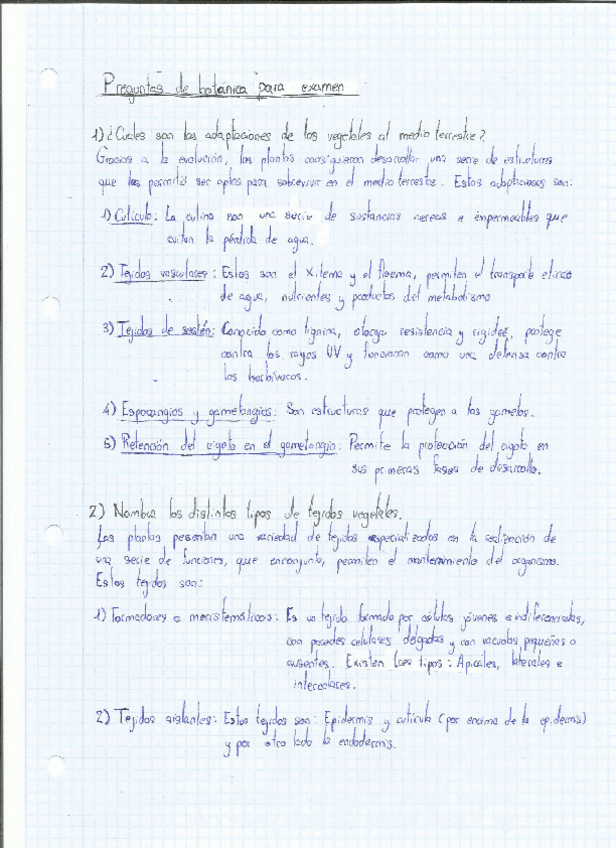 Preguntas de botánica para examen
1) ¿Cuáles son las adaptaciones de los vegetales al medio terrestre?
Gracias a la evolución, las plantas consiguieron desarrollar una serie de estructuras
que les permitió ser aptas para sobrevivir en el medio terrestre. Estas adaptaciones son:
1) Cutícula: La cutina son una serie de sustancias cereas e impermeables que
evitan la pérdida de agua.
2) Tejidos vasculares: Estos son el xilema y el floema, permiten el transporte eficaz
de agua, nutrientes y productos del metabolismo
3) Tejidos de sostén: Conocido como lignina, otorga resistencia y rigidez, protege
contra los rayos UV y funcionan como una defensa contra
los herbívoros.
4) Esporangios y gametangios: Son estructuras que protegen a los gametos.
5) Retención del cigoto en el gametangio: Permite la protección del cigoto en
sus primeras fases de desarrollo.
2) Nombra los distintos tipos de tejidos vegetales.
Las plantas presentan una variedad de tejidos especializados en la realización de
una serie de funciones, que en conjunto, permiten el mantenimiento del organismo.
Estos tejidos son:
1) Formadores o meristemáticos: Es un tejido formado por células jóvenes e indiferenciadas,
con paredes celulares delgadas y con vacuolas pequeñas o
ausentes. Existen tres tipos: Apicales, laterales e
intercalares.
2) Tejidos aislantes: Estos tejidos son: Epidermis y cutícula (por encima de la epidermis)
y por otro lado la endodermis.